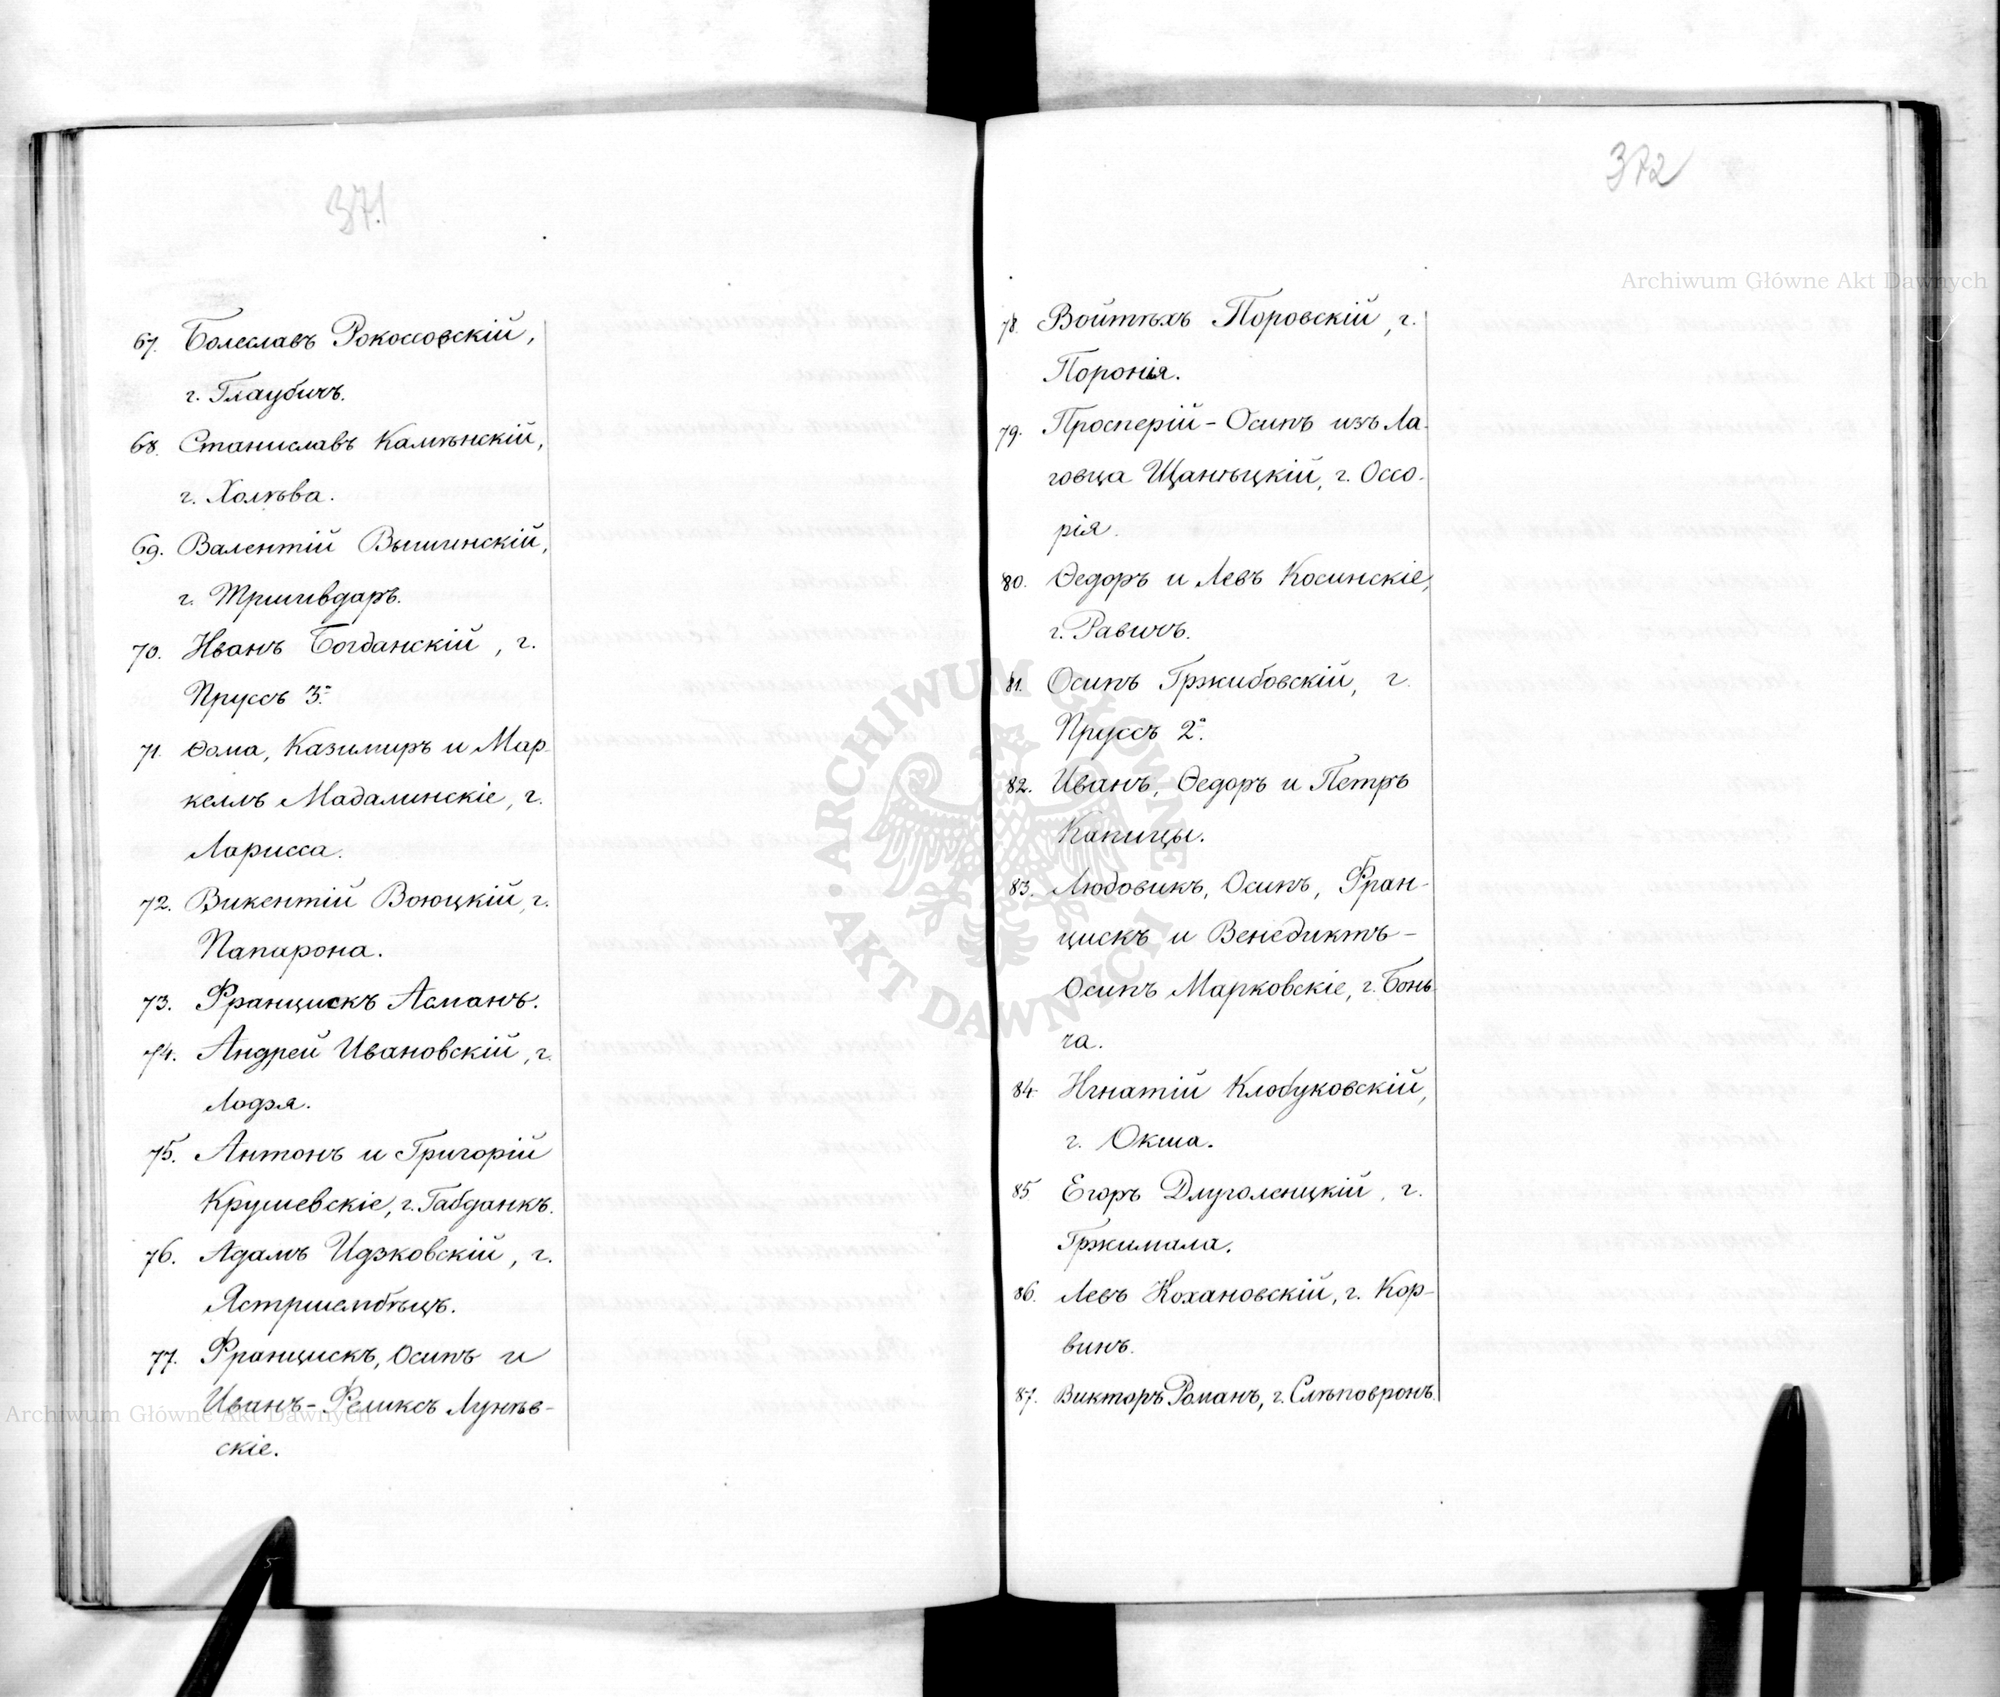 371
67. Болеславъ Рокоссовскій,
г. Глаубичъ.
68. Станиславъ Камѣнскій,
г. Холѣва.
69. Валентій Вышинскій,
г. Тришивдаръ.
70. Иванъ Богданскій, г.
Пруссъ 3º.
71. Ѳома, Казимиръ и Мар-
келлъ Мадалинскіе, г.
Ларисса.
72. Викентій Воюцкій, г.
Папарона.
73. Францискъ Асманъ.
74. Андрей Ивановскій, г.
Лодзя.
75. Антонъ и Григорій
Крушевскіе, г. Габданкъ.
76. Адамъ Идзковскій, г.
Ястршембѣцъ.
77. Францискъ, Осипъ и
Иванъ-Феликсъ Лунѣв-
скіе.
372
78. Войтѣхъ Поровскій, г.
Поронія.
79. Просперій-Осипъ изъ Ла-
говца Щанѣцкій, г. Оссо-
рія.
80. Ѳедоръ и Левъ Косинскіе,
г. Равичъ.
81. Осипъ Гржибовскій, г.
Пруссъ 2º.
82. Иванъ, Ѳедоръ и Петръ
Капицы.
83. Людовикъ, Осипъ, Фран-
цискъ и Венедиктъ-
Осипъ Марковскіе, г. Бонь-
ча.
84. Игнатій Клобуковскій,
г. Окша.
85. Егоръ Длуголенцкій, г.
Гржимала.
86. Левъ Кохановскій, г. Кор-
винъ.
87. Викторъ Романъ, г. Слѣповронъ.
Archiwum Główne Akt Dawnych
Archiwum Główne Akt Dawnych
ARCHIWUM GŁÓWNE AKT DAWNYCH